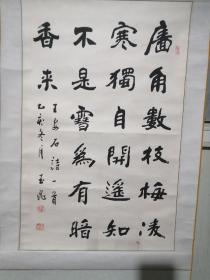 廧角數枝梅凌
寒獨自開遥知
不是雪為有暗
香来
王安石詩一首
乙亥冬月